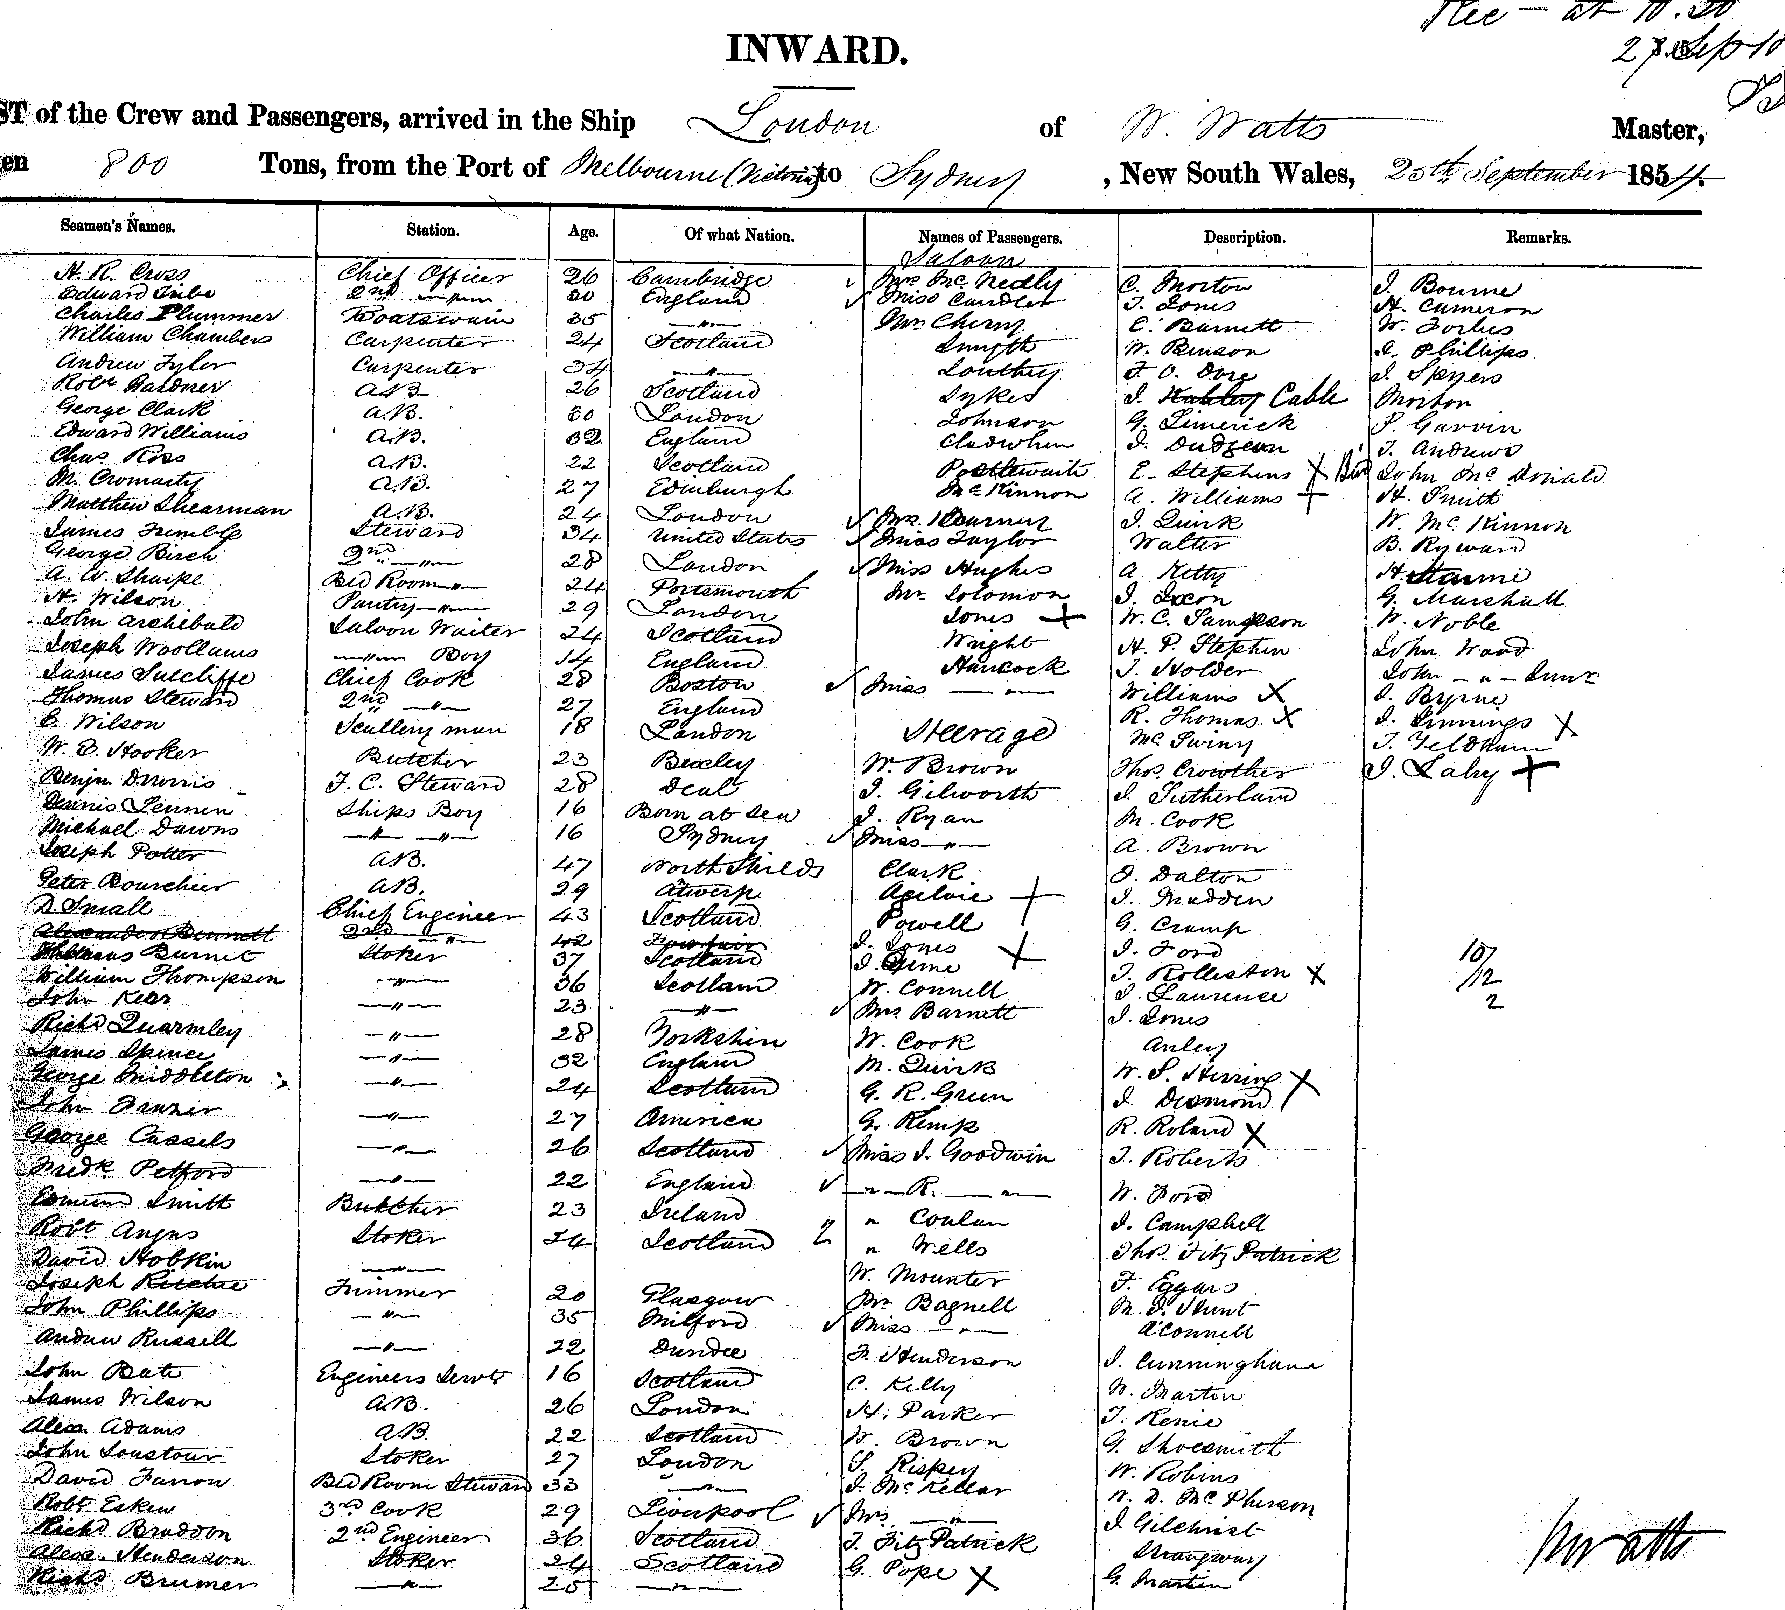 Rec - at 10.20
27 Sep 18
INWARD.
ST of the Crew and Passengers, arrived in the Ship London of W. Watts Master,
en 800 Tons, from the Port of Melbourne (Victoria) to Sydney, New South Wales, 25th September 1854.
Seamen's Names. Station. Age. Of what Nation. Names of Passengers. Description. Remarks.
Saloon
H. R. Cross Chief Officer 26 Cambridge Mrs Mc Nedly C. Morton J. Bourne
Edward Tribe 2nd —"— 30 England Miss Candler J. Jones H. Cameron
Charles Plummer Boatswain 35 —"— Mr Cherry C. Barnett W. Forbes
William Chambers Carpenter 24 Scotland Smyth W. Benson J. Phillips
Andrew Tyler Carpenter 34 —"— Southey F. O. Dore J. Speyers
Robt Gardner A.B. 26 Scotland Sykes J. Cable Morton
George Clark A.B. 30 London Johnson G. Limerick P. Garvin
Edward Williams A.B. 32 England J. Dudgeon J. Andrews
Chas Ross A.B. 22 Scotland Postlewaite E. Stephens X John Mc Donald
M. Cromarty A.B. 27 Edinburgh McKinnon A. Williams + H. Smith
Matthew Shearman A.B. 24 London Mrs J. Quirk W. McKinnon
James Trimble Steward 34 United States Miss Taylor Walter B. Ryward
George Birch 2nd —"— 28 London Miss Hughes A. Ketty H.
A. W. Sharpe Bed Room —"— 24 Portsmouth Mr Solomon J. Dixon G. Marshall
H. Wilson Pantry —"— 29 London Jones + W. C. Sampson W. Noble
John Archibald Saloon Waiter 24 Scotland Wright H. P. Stephen John Wood
Joseph Woollams —"— Boy 14 England Hancock J. Holder John —"— Junr
James Sutcliffe Chief Cook 28 Boston Miss —"— Williams X J. Byrne
Thomas Steward 2nd —"— 27 England R. Thomas X J. Jinnings X
E. Wilson Scullery man 18 London Steerage McSwiny J. Feldham
W. E. Hooker Butcher 23 Bexley W. Brown Thos. Crowther J. Lahy +
Benjn Dmorris F. C. Steward 28 Deal J. Gilworth J. Sutherland
Dennis Lennen Ships Boy 16 Born at Sea J. Ryan M. Cook
Michael Downs —"— —"— 16 Sydney Miss —"— A. Brown
Joseph Potter A.B. 47 North Shields Clark J. Dalton
Peter Bourchier A.B. 29 Atwerp Ageloie + J. Madden
D Small Chief Engineer 43 Scotland Powell G. Cramp
Alexander Bennett 2nd —"— 42 J. Jones X J. Ford 107
Burnet Stoker 37 Scotland J. Gime J. Rolleston X /12
William Thompson —"— 36 Scotland W. Connell J. Laurence 2
John Kerr —"— 23 —"— Mrs Barnett J. Jones
Richd Quarmley —"— 28 Yorkshire W. Cook Anley
James Spence —"— 32 England M. Quirk W. S. Herring X
George Middleton —"— 24 Scotland G. R. Green J. Desmond
John Frazier —"— 27 America G. Kemp R. Roland X
George Cassels —"— 26 Scotland Miss J. Goodwin J. Roberts
Fredk Petford —"— 22 England —"— R. —"— W. Ford
Edmund Smith Butcher 23 Ireland " Conlan J. Campbell
Robt Angus Stoker 24 Scotland 2 " Wells Thos. Fitz Patrick
David Hobkin —"— W. Mounter F. Eggars
Joseph Ritchie Trimmer 20 Glasgow Mr Bagnell M. J. Hunt
John Phillips —"— 35 Milford Miss —"— O'Connell
Andrew Russell —"— 22 Dundee F. Henderson J. Cunningham
John Bate Engineers Servt 16 Scotland C. Kelly W. Martin
James Wilson A.B. 26 London H. Parker J. Renie
Alex. Adams A.B. 22 Scotland W. Brown G. Shoesmith
John Loustour Stoker 27 London S. Rispey W. Robins
David Farron Bed Room Steward 33 —"— J. McKellar W. D. McPherson
Robt Eskew 3rd Cook 29 Liverpool Mrs —"— J. Gilchrist
Richd Braddon 2nd Engineer 36 Scotland J. Fitz Patrick Strangway
Alexr. Henderson Stoker 24 Scotland G. Pope X G. Martin
Richd Brumer —"— 25 —"—
Wm Watts